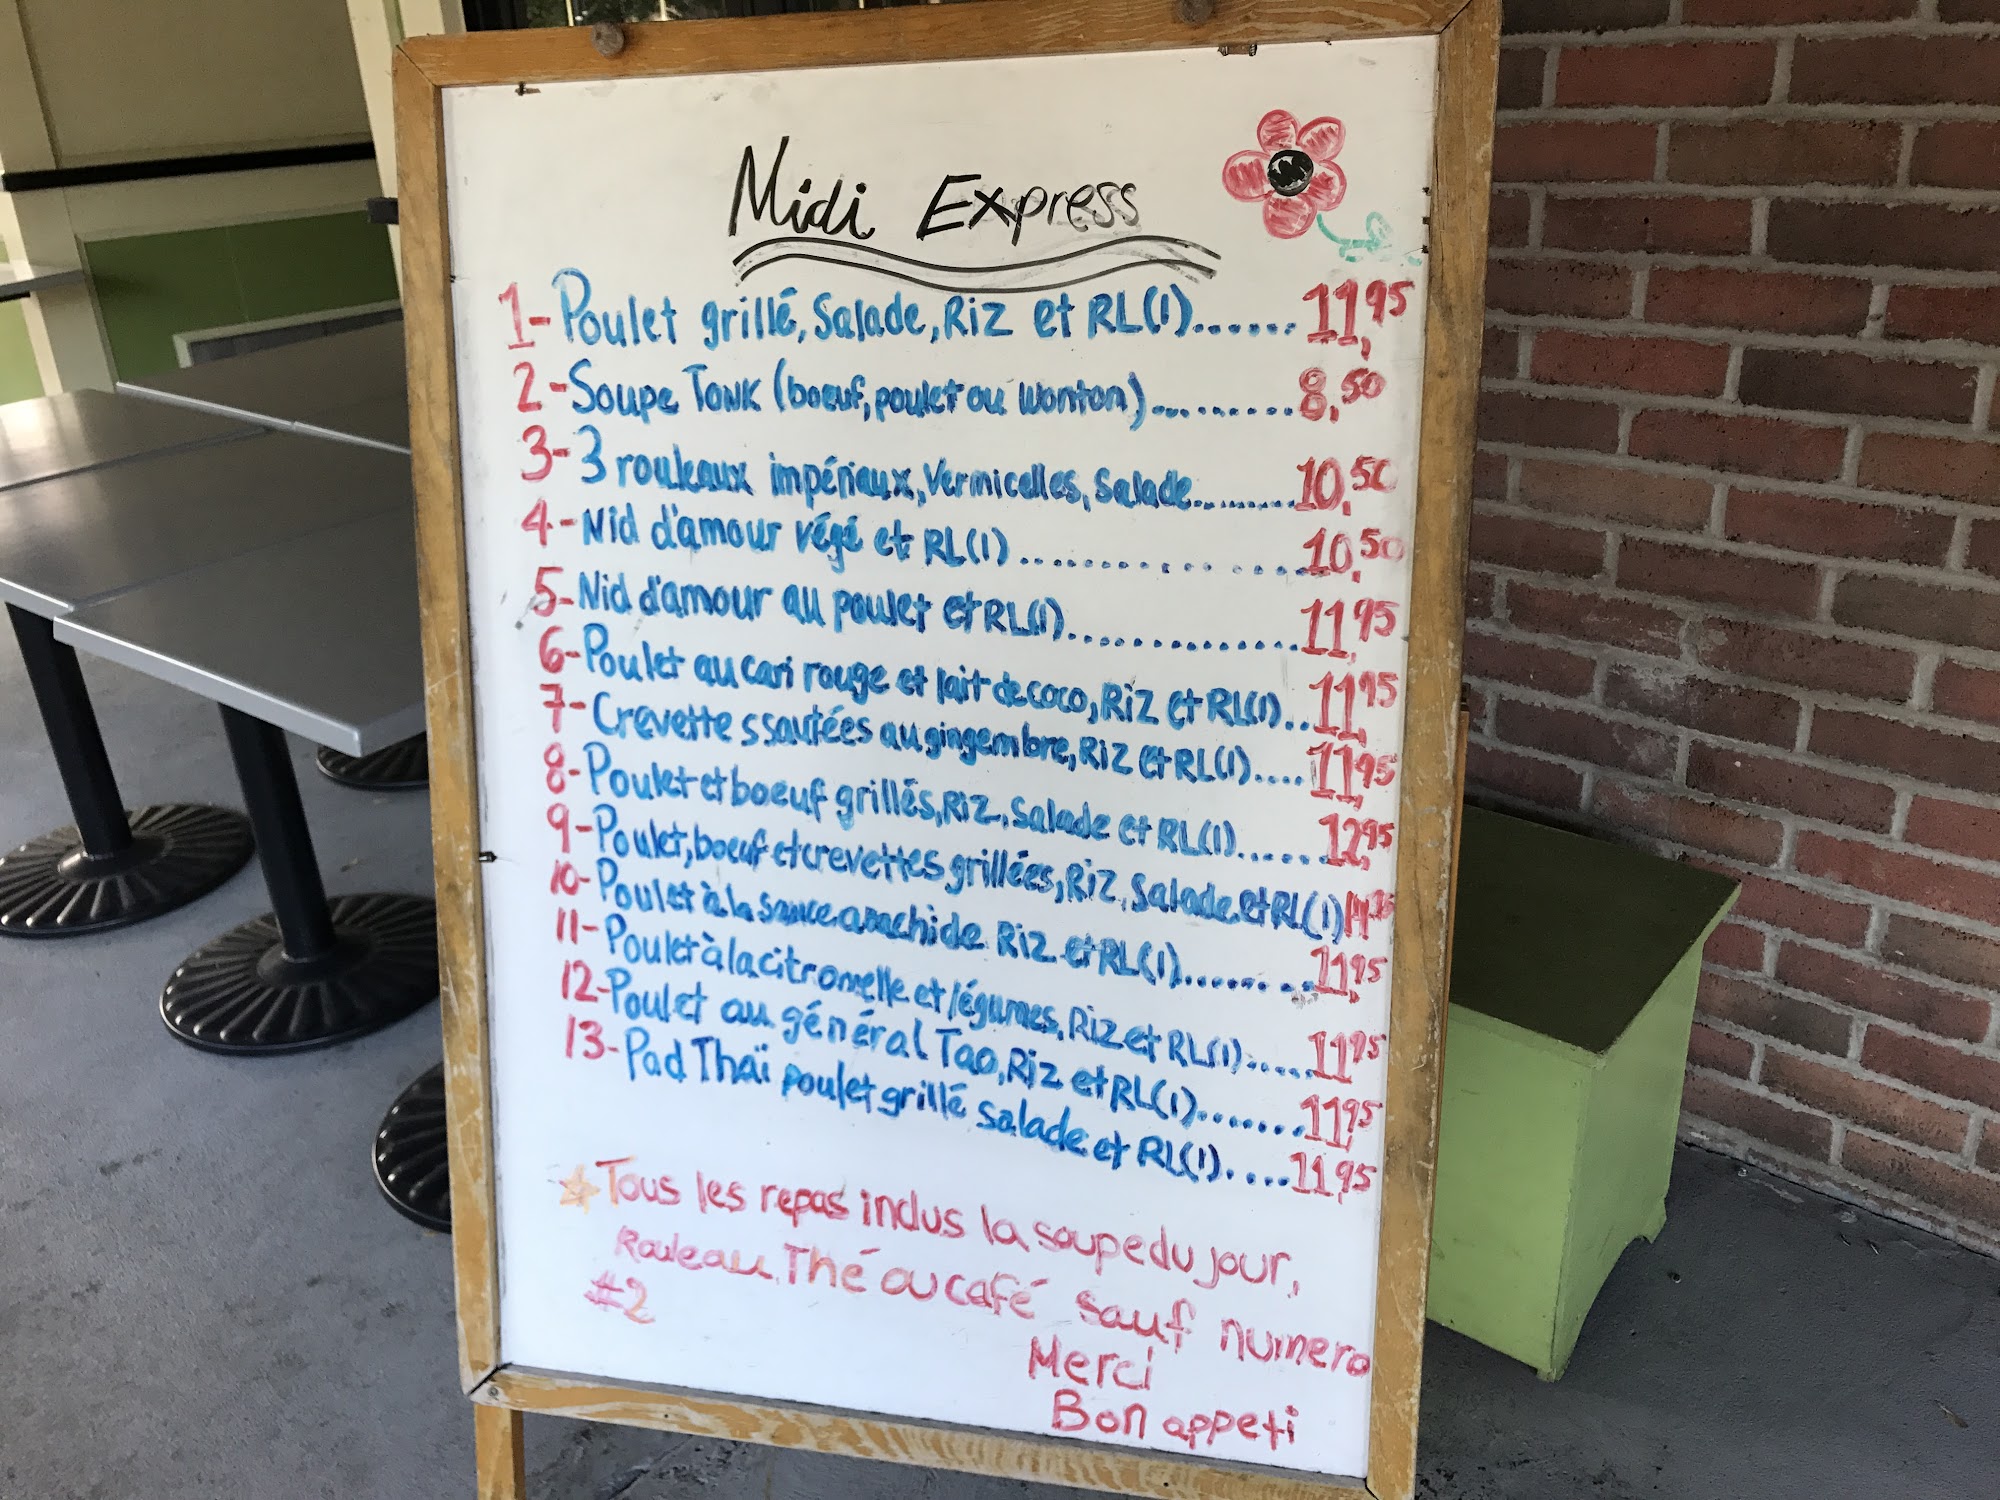 Midi Express
1- Poulet grillé, Salade, Riz et RL(1)...... 11,95
2- Soupe TONK (boeuf, poulet ou wonton).......... 8,50
3- 3 rouleaux impériaux, Vermicelles, Salade......... 10,50
4- Nid d'amour végé et RL(1) .................. 10,50
5- Nid d'amour au poulet et RL(1)............... 11,95
6- Poulet au cari rouge et lait de coco, Riz et RL(1).. 11,95
7- Crevettes sautées au gingembre, Riz et RL(1).... 11,95
8- Poulet et boeuf grillés, Riz, Salade et RL(1)...... 12,95
9- Poulet, boeuf et crevettes grillées, Riz, Salade et RL(1)
10- Poulet à la sauce arachide Riz et RL(1)........ 11,95
11- Poulet à la citronnelle et légumes, Riz et RL(1)..... 11,95
12- Poulet au général Tao, Riz et RL(1)....... 11,95
13- Pad Thaï poulet grillé salade et RL(1).... 11,95
Tous les repas inclus la soupe du jour,
Rouleau, Thé ou café sauf numero
#2
Merci
Bon appeti